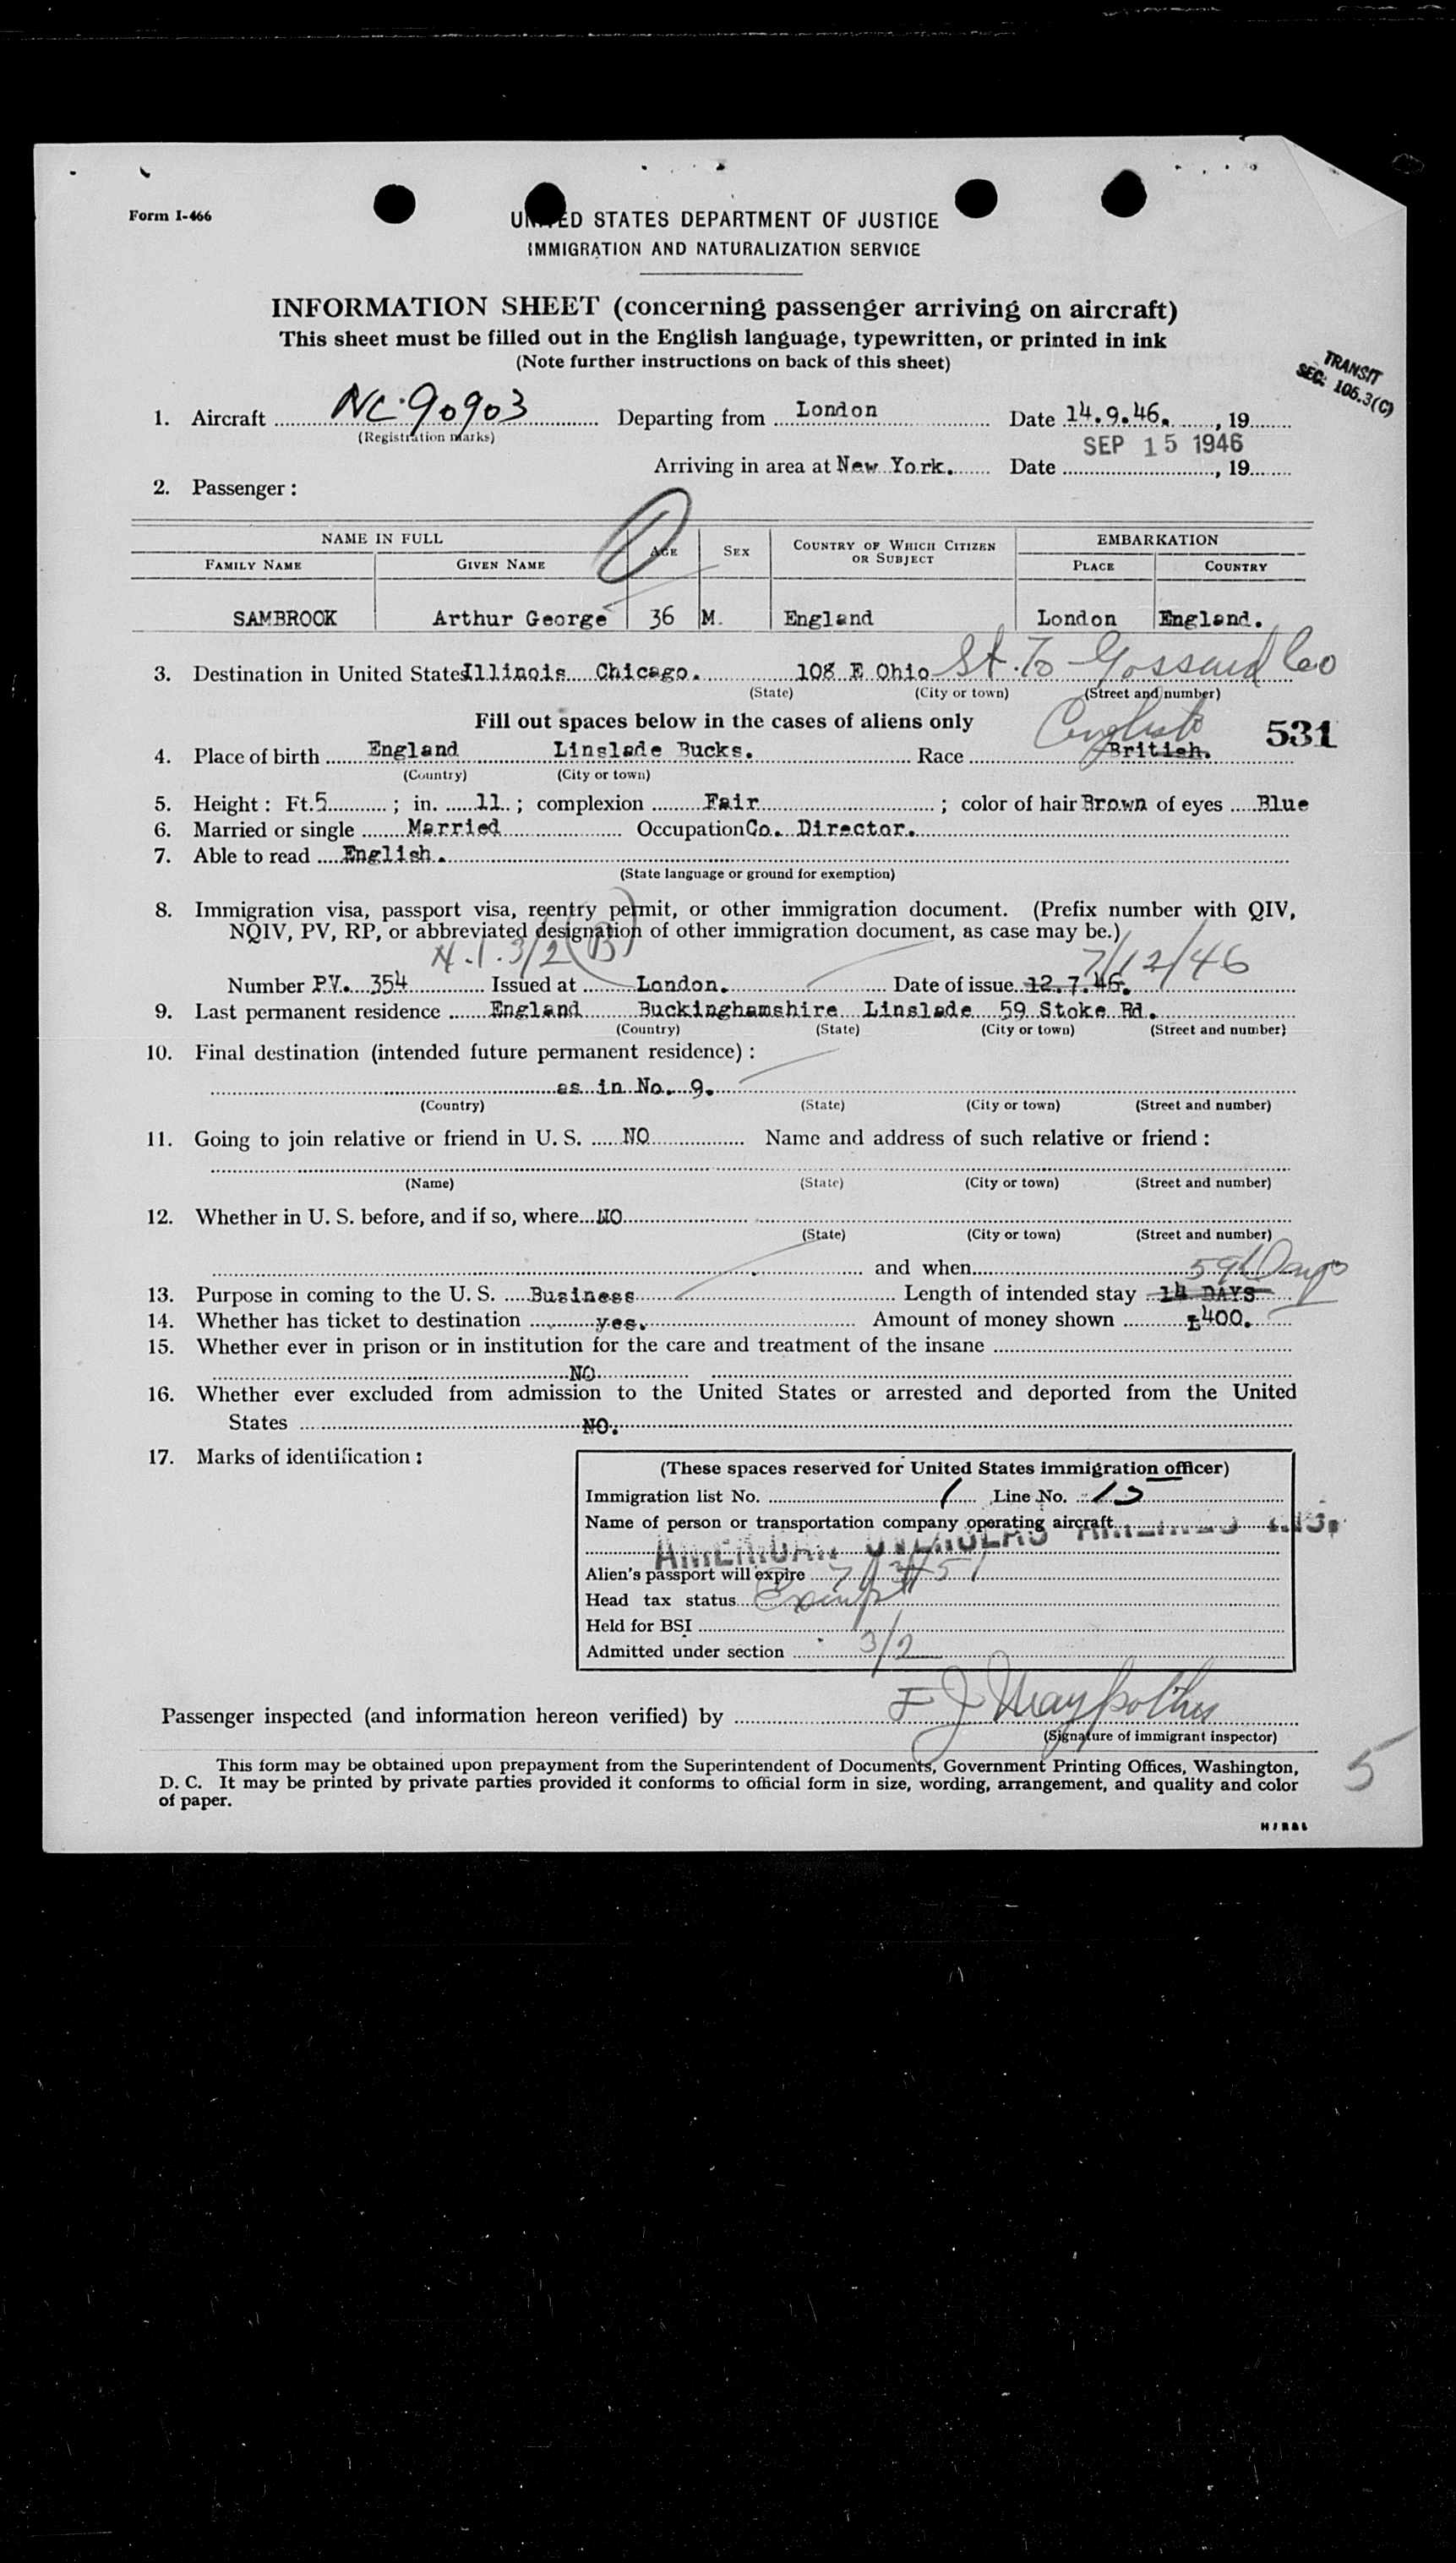 Form I-466
UNITED STATES DEPARTMENT OF JUSTICE
IMMIGRATION AND NATURALIZATION SERVICE
INFORMATION SHEET (concerning passenger arriving on aircraft)
This sheet must be filled out in the English language, typewritten, or printed in ink
(Note further instructions on back of this sheet)
TRANSIT
SEC: 106.3(C)
1. Aircraft NC.90903 Departing from London Date 14.9.46. , 19
(Registration marks)
SEP 15 1946
Arriving in area at New York. Date , 19
2. Passenger:
NAME IN FULL AGE SEX COUNTRY OF WHICH CITIZEN OR SUBJECT EMBARKATION
FAMILY NAME GIVEN NAME PLACE COUNTRY
SAMBROOK Arthur George 36 M. England London England.
3. Destination in United States Illinois Chicago. 108 E Ohio St. To Gossard Co
(State) (City or town) (Street and number)
Fill out spaces below in the cases of aliens only
English 531
4. Place of birth England Linslade Bucks. Race British.
(Country) (City or town)
5. Height: Ft. 5 ; in. 11 ; complexion Fair ; color of hair Brown of eyes Blue
6. Married or single Married Occupation Co. Director.
7. Able to read English.
(State language or ground for exemption)
8. Immigration visa, passport visa, reentry permit, or other immigration document. (Prefix number with QIV,
NQIV, PV, RP, or abbreviated designation of other immigration document, as case may be.)
3/2(B) 7/12/46
Number P.V. 354 Issued at London. Date of issue 12.7.46.
9. Last permanent residence England Buckinghamshire Linslade 59 Stoke Rd.
(Country) (State) (City or town) (Street and number)
10. Final destination (intended future permanent residence):
as in No. 9.
(Country) (State) (City or town) (Street and number)
11. Going to join relative or friend in U. S. NO Name and address of such relative or friend:
(Name) (State) (City or town) (Street and number)
12. Whether in U. S. before, and if so, where NO
(State) (City or town) (Street and number)
and when 59 Days
13. Purpose in coming to the U. S. Business Length of intended stay 14 DAYS
14. Whether has ticket to destination yes. Amount of money shown £400.
15. Whether ever in prison or in institution for the care and treatment of the insane
NO
16. Whether ever excluded from admission to the United States or arrested and deported from the United
States NO.
17. Marks of identification:
(These spaces reserved for United States immigration officer)
Immigration list No. 1 Line No. 15
Name of person or transportation company operating aircraft
AMERICAN OVERSEAS AIRLINES INC.
Alien's passport will expire
Head tax status Exempt
Held for BSI
Admitted under section 3/2
Passenger inspected (and information hereon verified) by F J
(Signature of immigrant inspector)
This form may be obtained upon prepayment from the Superintendent of Documents, Government Printing Offices, Washington,
D. C. It may be printed by private parties provided it conforms to official form in size, wording, arrangement, and quality and color
of paper.
5